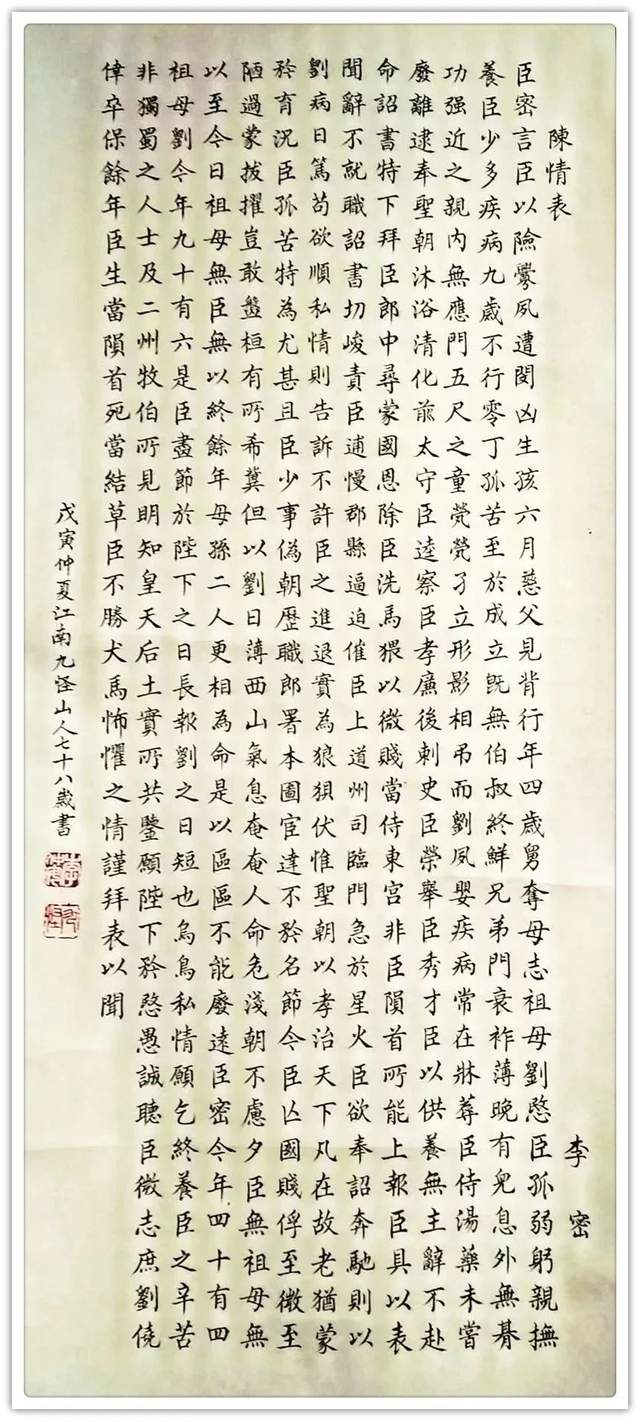 陳情表 李密
臣密言臣以險釁夙遭閔凶生孩六月慈父見背行年四歲舅奪母志祖母劉愍臣孤弱躬親撫
養臣少多疾病九歲不行零丁孤苦至於成立既無伯叔終鮮兄弟門衰祚薄晚有兒息外無朞
功强近之親內無應門五尺之童煢煢孑立形影相弔而劉夙嬰疾病常在牀蓐臣侍湯藥未嘗
廢離逮奉聖朝沐浴清化前太守臣逵察臣孝廉後刺史臣榮舉臣秀才臣以供養無主辭不赴
命詔書特下拜臣郎中尋蒙國恩除臣洗馬猥以微賤當侍東宮非臣隕首所能上報臣具以表
聞辭不就職詔書切峻責臣逋慢郡縣逼迫催臣上道州司臨門急於星火臣欲奉詔奔馳則以
劉病日篤苟欲順私情則告訴不許臣之進退實為狼狽伏惟聖朝以孝治天下凡在故老猶蒙
矜育況臣孤苦特為尤甚且臣少事偽朝歷職郎署本圖宦達不矜名節今臣亡國賤俘至微至
陋過蒙拔擢豈敢盤桓有所希冀但以劉日薄西山氣息奄奄人命危淺朝不慮夕臣無祖母無
以至今日祖母無臣無以終餘年母孫二人更相為命是以區區不能廢遠臣密今年四十有四
祖母劉今年九十有六是臣盡節於陛下之日長報劉之日短也烏鳥私情願乞終養臣之辛苦
非獨蜀之人士及二州牧伯所見明知皇天后土實所共鑒願陛下矜愍愚誠聽臣微志庶劉僥
倖卒保餘年臣生當隕首死當結草臣不勝犬馬怖懼之情謹拜表以聞
戊寅仲夏江南九怪山人七十八歲書